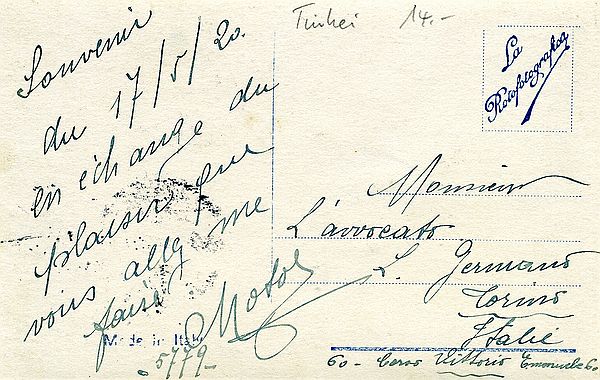 Souvenir
du 17/5/20.
en échange du
plaisir que
vous allez me
faire
Made in Italy
5779-
14.-
La
Rotofotografica
Monsieur
L'avvocato
L. Germano
Torino
Italie
60 - Corso Vittorio Emanuele 60